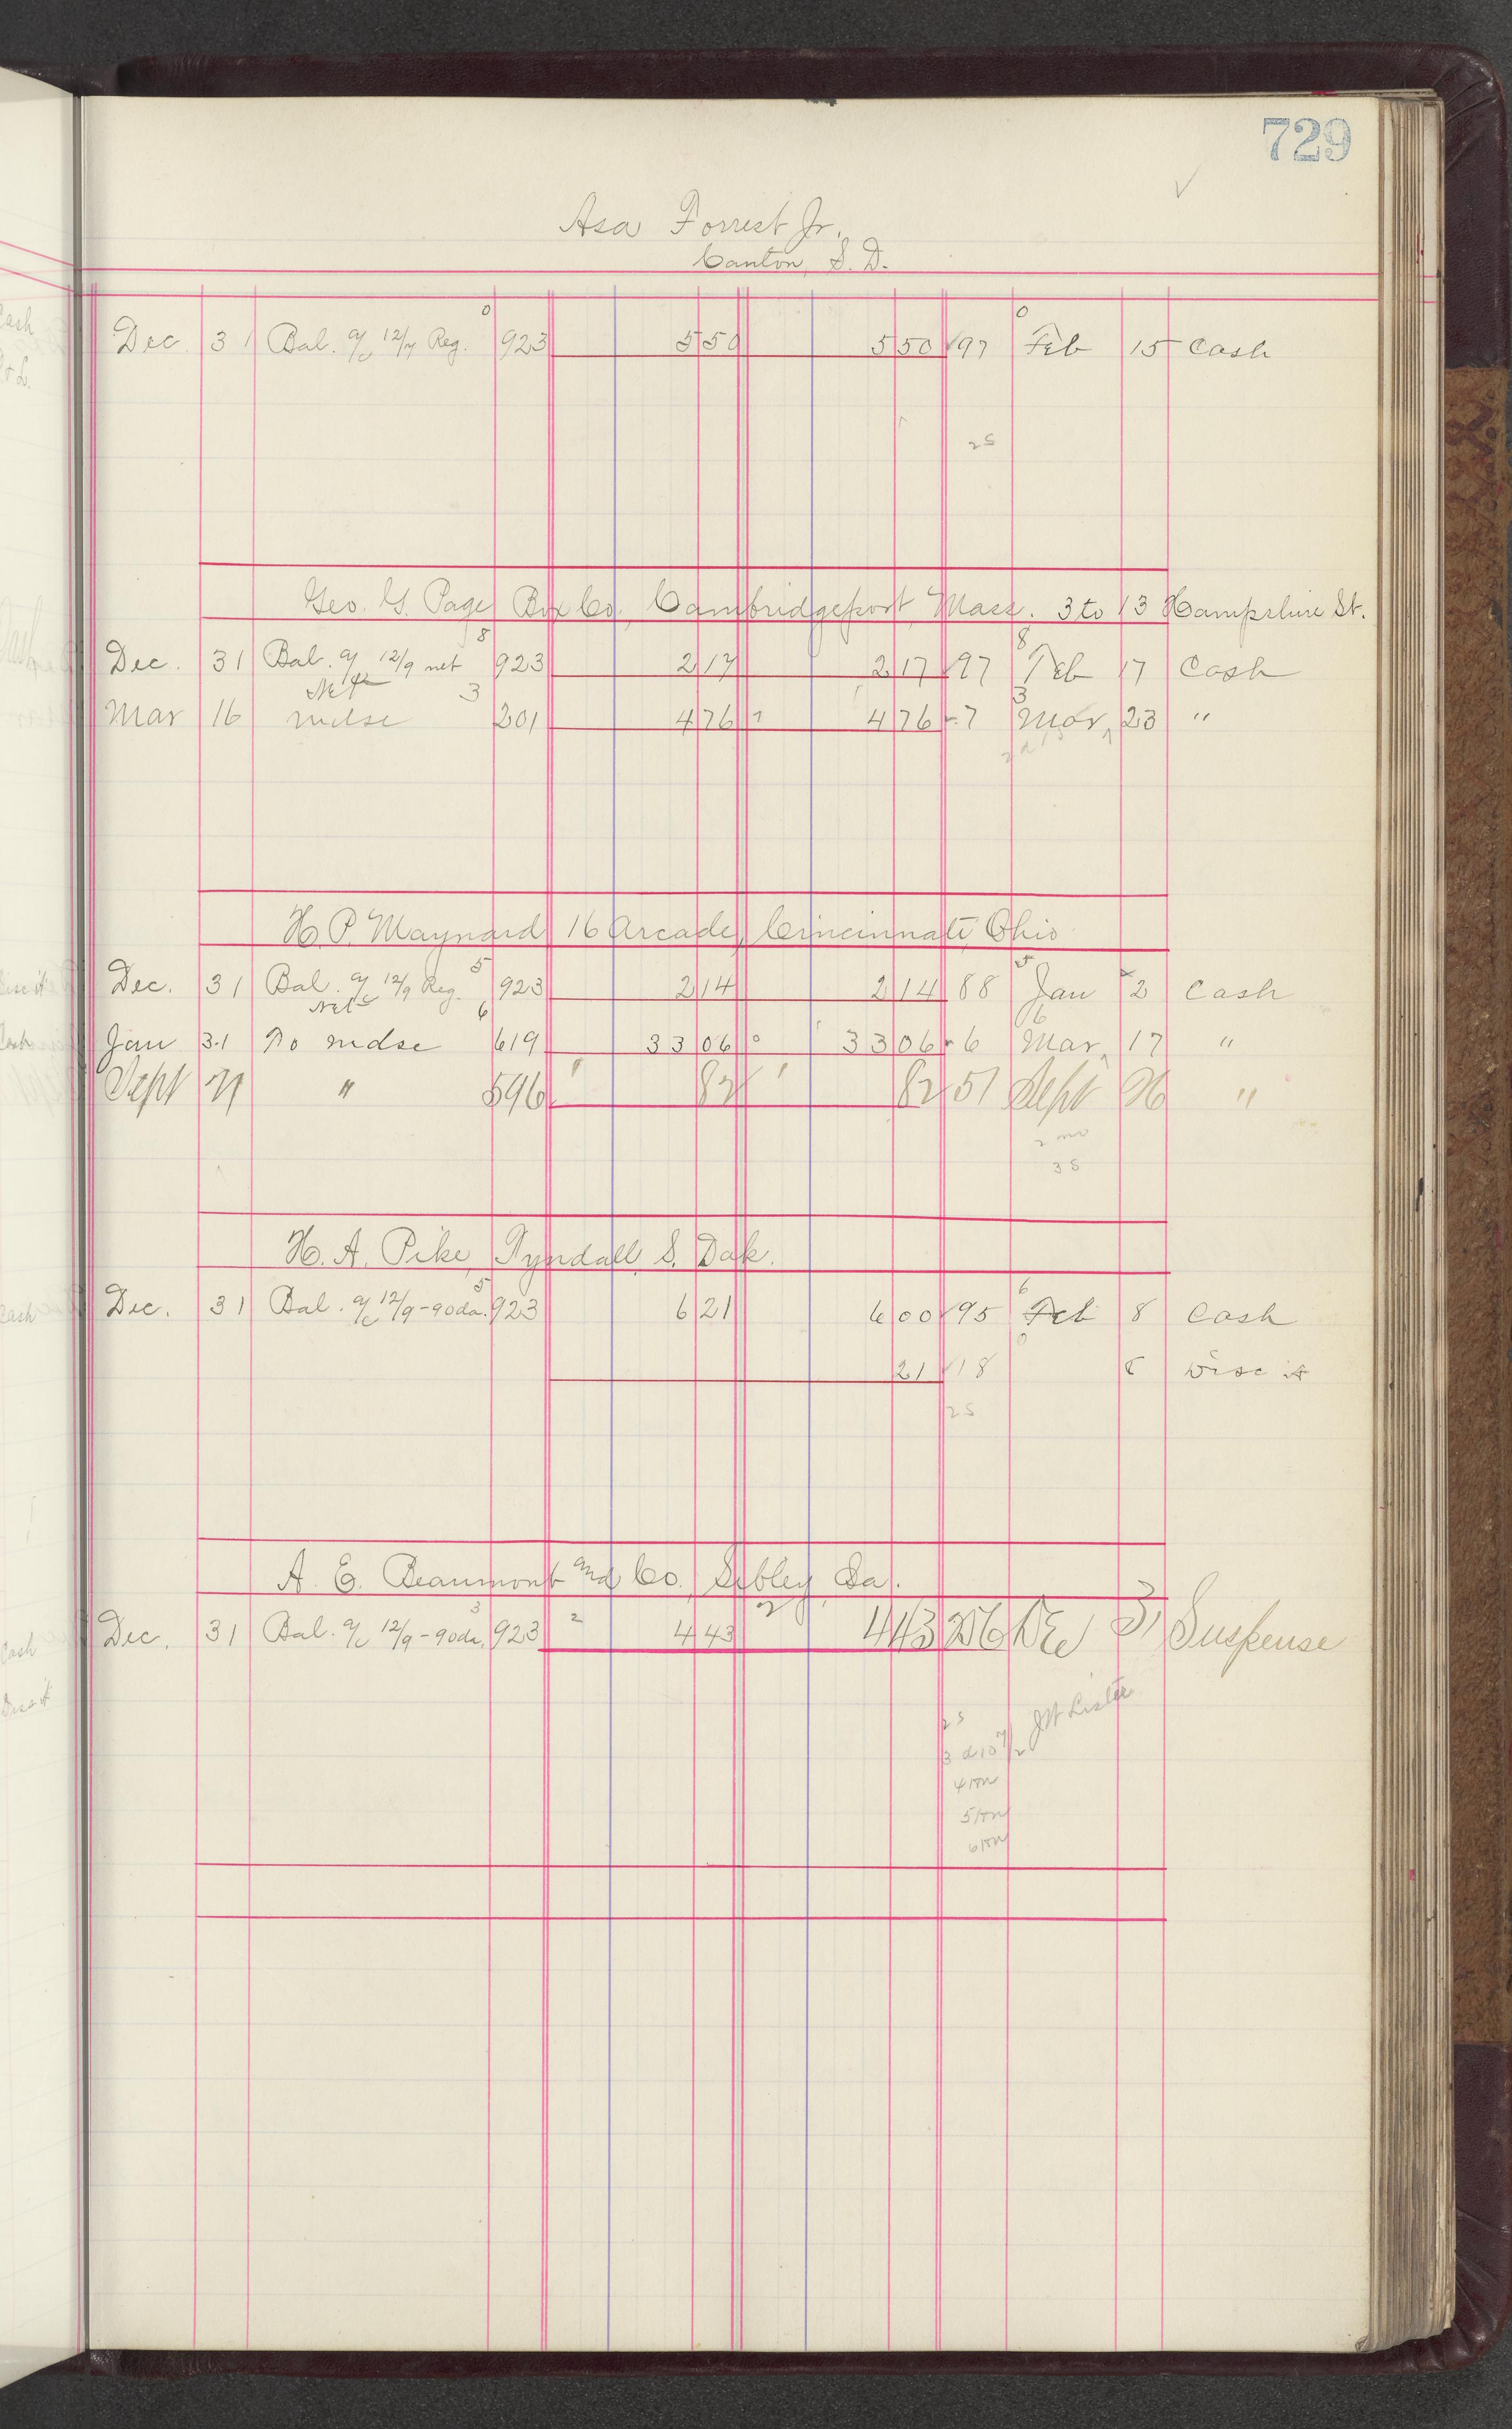 729
Asa Forrest Jr.
Canton, S. D.
Dec 31 Bal. a/c 12/7 Reg. 0 923 5 50 5 50 97 0 Feb 15 Cash
25
Geo. G. Page Box Co. Cambridgeport, Mass. 3 to 13 Hampshire St.
Dec. 31 Bal. a/c 12/9 net 8 923 2 17 2 17 97 8 Feb 17 Cash
Mar 16 Net mdse 3 201 4 76 4 76 7 3 Mar, 23 "
H. P. Maynard 16 Arcade, Cincinnati, Ohio
Dec. 31 Bal. a/c 12/9 Reg. 5 923 2 14 2 14 88 5 Jan 2 Cash
Jan 31 Net To mdse 6 619 33 06 33 06 6 6 Mar, 17 "
Sept 21 " 596 82 82 51 Sept 26 "
2 mo
35
H. A. Pike, Tyndall S. Dak.
Dec. 31 Bal. a/c 12/9 - 90 da. 5 923 6 21 6 00 95 6 Feb 8 Cash
21 18 0 8 Disc it
25
A. E. Beaumont and Co. Sibley, Ia.
Dec. 31 Bal. a/c 12/9 - 90 da. 3 923 2 4 43 2 4 43 256 Dec 31 Suspense
25
JW Lister